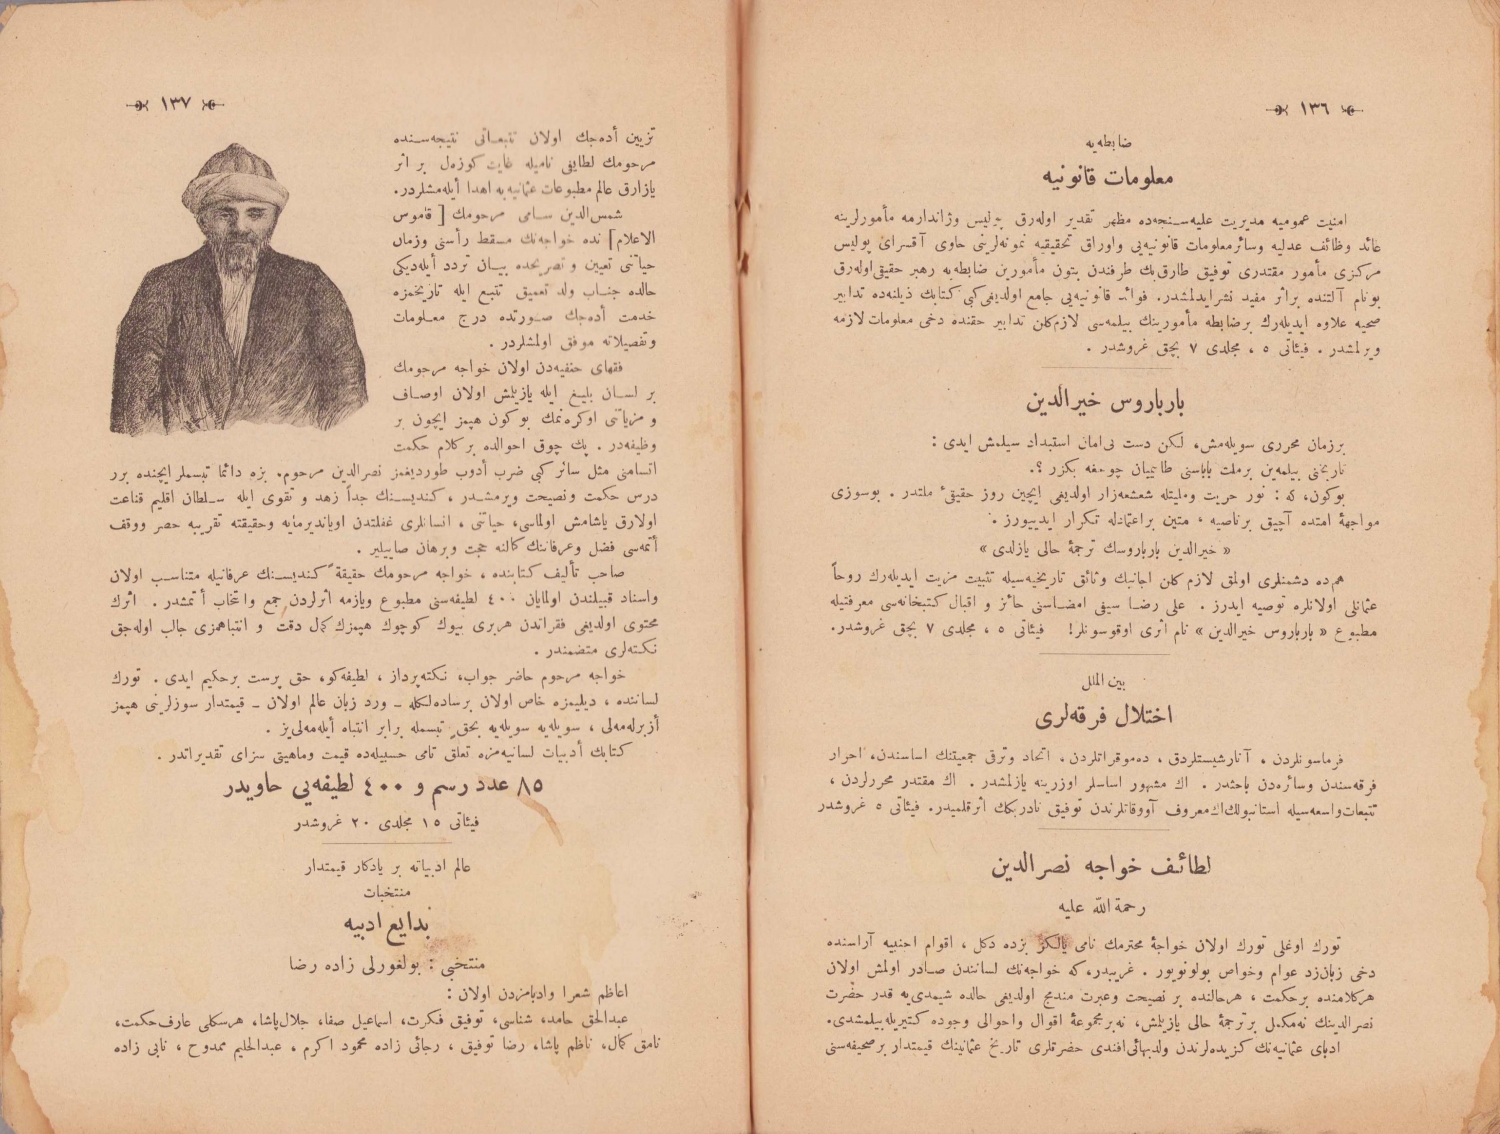 ١٣٦
ضابطه‌یه
معلومات قانونیه
امنیت عمومیه مدیریت علیه‌سنجه‌ده مظهر تقدیر اوله‌رق پولیس وژاندارمه مأمورلرینه
عائد وظائف عدلیه وسائر معلومات قانونیه‌یی واوراق تحقیقیه نمونه‌لرینی حاوی آقسرای پولیس
مرکزی مأمور مقتدری توفیق طارق بك طرفندن بتون مأمورین ضابطه‌یه رهبر حقیقی اوله‌رق
بونام آلتنده براثر مفید نشر ایدلمشدر. فوائد قانونیه‌یی جامع اولدیغی کبی کتابك ذیلنه‌ده تدابیر
صحیه علاوه ایدیله‌رك برضابطه مأمورینك بیلمه‌سی لازم‌کلن تدابیر حقنده دخی معلومات لازمه
ویرلمشدر . فیئاتی ٥ ، مجلدی ٧ بچق غروشدر .
بارباروس خیرالدین
برزمان محرری سویله‌مش، لکن دست بی‌امان استبداد سیلمش ایدی :
تاریخنی بیلمه‌ین برملت باباسنی طانیمیان چوجغه بکزر ؟.
بوکون، که : نور حریت وملیتله شعشعه‌زار اولدیغی ایچین روز حقیقیٔ ملتدر . بوسوزی
مواجههٔ امتده آچیق برناصیه ، متین براعتمادله تکرار ایدییورز .
« خیرالدین بارباروسك ترجمهٔ حالی یازلدی »
هم‌ده دشمنلری اولمق لازم کلن اجانبك وثائق تاریخیه‌سیله تثبیت مزیت ایدیله‌رك روحاً
عثمانلی اولانلره توصیه ایدرز . علی رضا سیفی امضاسنی حائز و اقبال کتبخانه‌سی معرفتیله
مطبوع « بارباروس خیرالدین » نام اثری اوقوسونلر! فیئاتی ٥ ، مجلدی ٧ بچق غروشدر.
بین الملل
اختلال فرقه‌لری
فرماسونلردن ، آنارشیستلردق ، ده‌موقراتلردن، اتحاد وترقی جمعیتنك اساسندن، احرار
فرقه‌سندن وسائره‌دن باحثدر . اك مشهور اساسلر اوزرینه یازلمشدر . اك مقتدر محررلردن ،
تتبعات واسعه‌سیله استانبولك اك معروف آووقاتلرندن توفیق نادر بکك اثر قلمیدر. فیئاتی ٥ غروشدر
لطائف خواجه نصرالدین
رحمة الله علیه
تورك اوغلی تورك اولان خواجهٔ محترمك نامی یالکز بزده دکل ، اقوام اجنبیه آراسنده
دخی زبان‌زد عوام وخواص بولونویور . غریبدر، که خواجه‌نك لسانندن صادر اولمش اولان
هرکلامنده برحکمت ، هرحالنده بر نصیحت وعبرت مندمج اولدیغی حالده شیمدی‌یه قدر حضرت
نصرالدینك نه‌مکمل برترجمهٔ حالی یازیلمش، نه‌برمجموعهٔ اقوال واحوالی وجوده کتیریله‌بیلمشدی.
ادبای عثمانیه‌نك کزیده‌لرندن ولد بهائی افندی حضرتلری تاریخ عثمانینك قیمتدار برصحیفه‌سنی
١٣٧
تزیین أده‌جك اولان تتبعاتی نتیجه‌سنده
مرحومك لطایفی نامیله غایت کوزه‌ل بر اثر
یازارق عالم مطبوعات عثمانیه‌یه اهدا أیله‌مشلردر.
شمس‌الدین سامی مرحومك [ قاموس
الاعلام] نده خواجه‌نك مسقط رأسنی وزمان
حیاتنی تعیین و تصریحده بیان تردد أیله‌دیکی
حالده جناب ولد تعمیق تتبع ایله تاریخمزه
خدمت أده‌جك صورتده درج معلومات
وتفصیلاته موفق اولمشلردر .
فقهای حنفیه‌دن اولان خواجه مرحومك
بر لسان بلیغ ایله یازیلمش اولان اوصاف
و مزیاتنی اوکره‌نمك بوکون هپمز ایچون بر
وظیفه‌در . پك چوق احوالده برکلام حکمت
اتسامنی مثل سائر کبی ضرب أدوب طوردیغمز نصرالدین مرحوم، بزه دائما تبسملر ایچنده برر
درس حکمت ونصیحت ویرمشدر ، کندیسنك جداً زهد و تقوی ایله سلطان اقلیم قناعت
اولارق یاشامش اولماسی، حیاتنی ، انسانلری غفلتدن اویاندیرمایه وحقیقته تقریبه حصر ووقف
أتمه‌سی فضل وعرفاننك کمالنه حجت وبرهان صاییلیر .
صاحب تألیف کتابنده ، خواجه مرحومك حقیقةً کندیسنك عرفانیله متناسب اولان
واسناد قبیلندن اولمایان ٤٠٠ لطیفه‌سنی مطبوع ویازمه اثرلردن جمع وانتخاب أتمشدر . اثرك
محتوی اولدیغی فقراتدن هربری بیوك کوچوك هپمزك کمال دقت و انتباهمزی جالب اوله‌جق
نکته‌لری متضمندر .
خواجه مرحوم حاضر جواب، نکته‌پرداز ، لطیفه‌کو، حق پرست برحکیم ایدی . تورك
لساننده ، دیلیمزه خاص اولان برساده‌لکله ـ ورد زبان عالم اولان ـ قیمتدار سوزلرینی هپمز
أزبرله‌مه‌لی ، سویله‌یه سویله‌یه بحق تبسمله برابر انتباه أیله‌مه‌لی‌یز .
کتابك أدبیات لسانیه‌مزه تعلق تامی حسبیله‌ده قیمت وماهیتی سزای تقدیراتدر .
٨٥ عدد رسم و ٤٠٠ لطیفه‌یی حاویدر
فیئاتی ١٥ مجلدی ٢٠ غروشدر
عالم ادبیاته بر یادکار قیمتدار
منتخبات
بدایع ادبیه
منتخبی : بولغورلی زاده رضا
اعاظم شعرا وادبامزدن اولان :
عبدالحق حامد، شناسی، توفیق فکرت، اسماعیل صفا، جلال‌پاشا، هرسکلی عارف حکمت،
نامق کمال، ناظم پاشا، رضا توفیق ، رجائی زاده محمود اکرم ، عبدالحلیم ممدوح ، نابی زاده